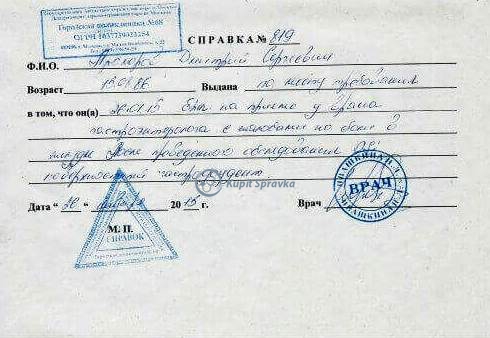 Городская поликлиника №68
СПРАВКА № 819
Ф.И.О. Прохоров Дмитрий Сергеевич
Возраст 13.01.86 Выдана по месту требования
в том, что он(а) 20.01.15 был на приеме у врача
гастроэнтеролога с жалобами на боли в
После проведенного обследования DS:
поверхностный гастродуоденит.
Kupit Spravka
Дата "20" января 2015 г. Врач
М. П.
СПРАВОК
ВРАЧ